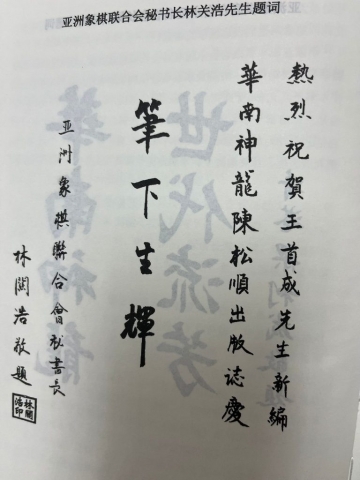 亚洲象棋联合会秘书长林关浩先生题词
熱烈祝賀王首成先生新編
華南神龍陳松順出版誌慶
筆下生輝
亚洲象棋聯合會秘書長
林關浩敬題
林關浩印